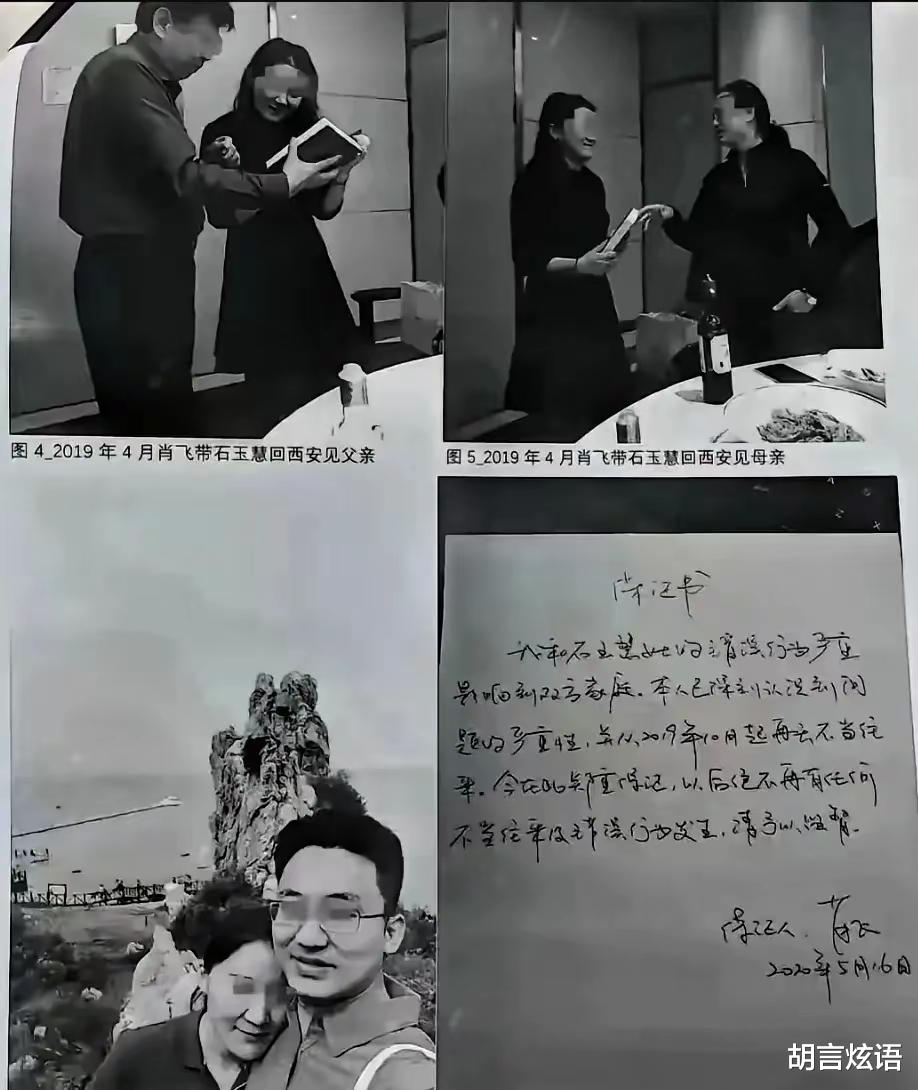 图 4_2019 年 4 月肖飞带石玉慧回西安见父亲
图 5_2019 年 4 月肖飞带石玉慧回西安见母亲
保证书
我和石玉慧的错误行为严重
影响到双方家庭。本人已深刻认识到问
题的严重性，并从2019年10月起再无不当往
来。今在此郑重保证，以后绝不再有任何
不当往来及错误行为发生，请予以监督。
保证人：肖飞
2020年5月16日
胡言炫语